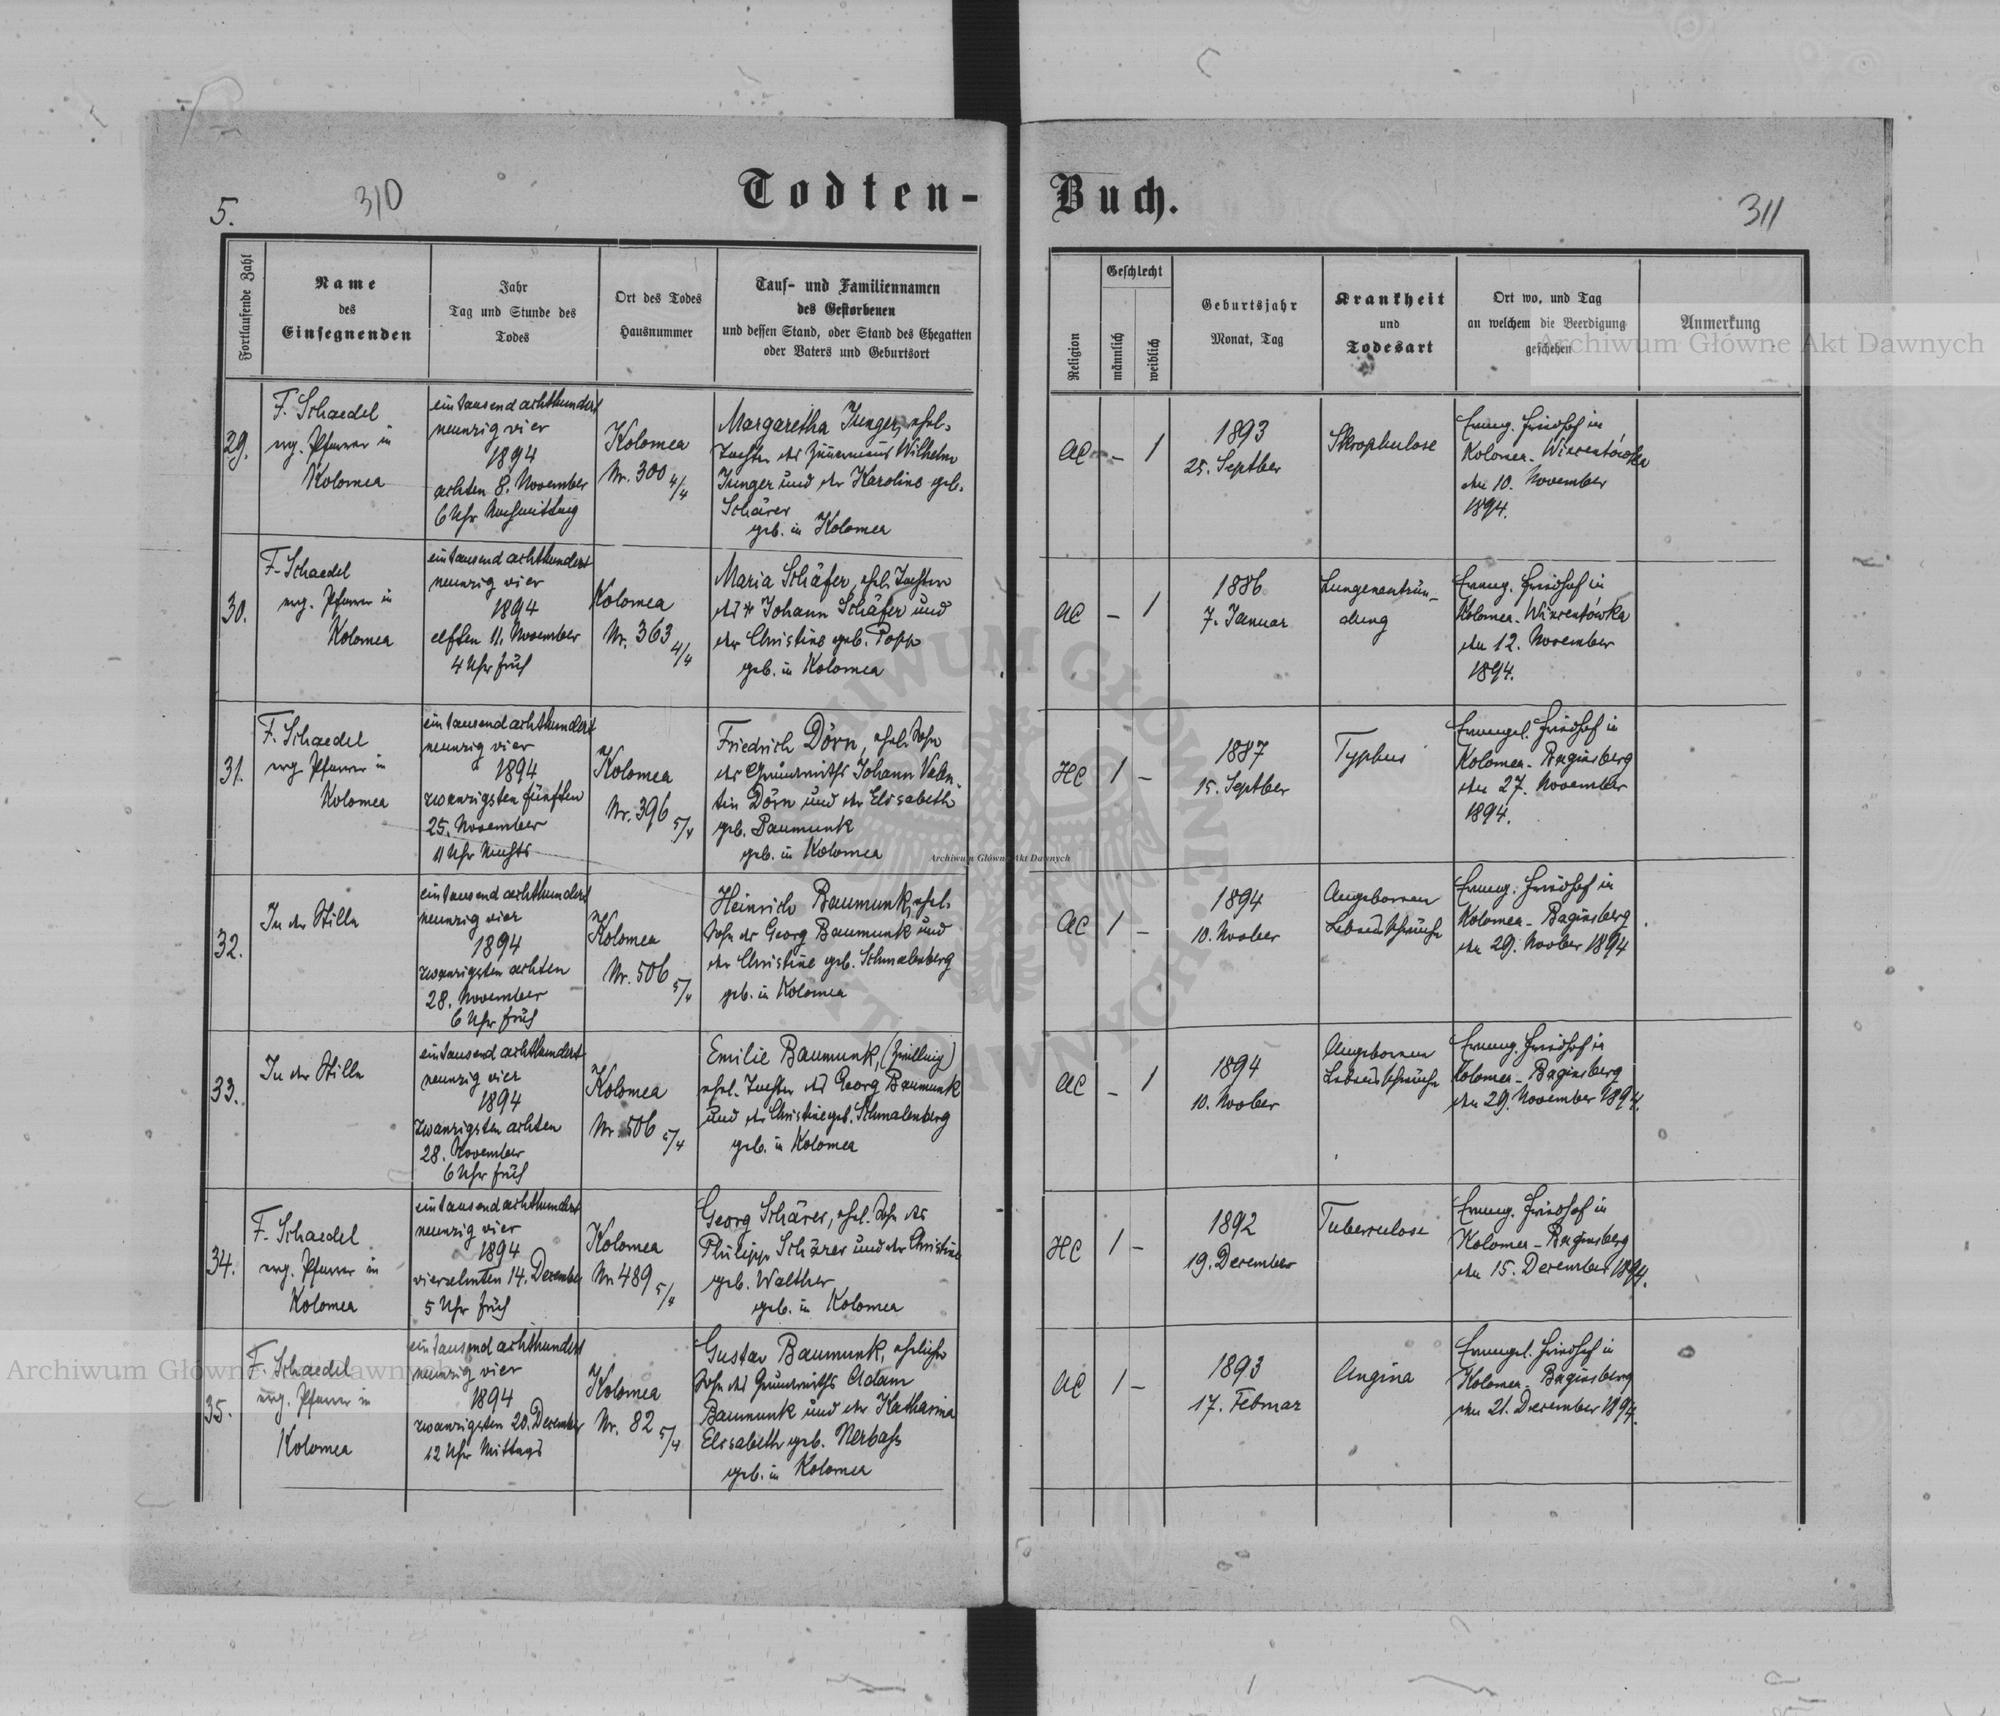 5.
310
Todten-
Buch.
311
Fortlaufende Zahl
Name
des
Einsegnenden
Jahr
Tag und Stunde des
Todes
Ort des Todes
Hausnummer
Tauf- und Familiennamen
des Gestorbenen
und dessen Stand, oder Stand des Ehegatten
oder Vaters und Geburtsort
Religion
Geschlecht
männlich
weiblich
Geburtsjahr
Monat, Tag
Krankheit
und
Todesart
Ort wo, und Tag
an welchem die Beerdigung
geschehen
Anmerkung
29.
F. Schaedel
evg. Pfarrer in
Kolomea
eintausend achthundert
neunzig vier
1894
achten 8. November
6 Uhr Nachmittag
Kolomea
Nr. 300 4/4
Margaretha Junger, ehel.
Tochter des Zimermans Wilhelm
Junger und der Karoline geb.
Schärer
geb. in Kolomea
AC
–
1
1893
25. Septber
Skrophulose
Evang. Friedhof in
Kolomea-Wincentówka
den 10. November
1894.
30.
F. Schaedel
evg. Pfarrer in
Kolomea
eintausend achthundert
neunzig vier
1894
elften 11. November
4 Uhr früh
Kolomea
Nr. 363 4/4
Maria Schäfer, ehel. Tochter
des Johann Schäfer und
der Christine geb. Popp
geb. in Kolomea
AC
–
1
1886
7. Januar
Lungenentzün-
dung
Evang. Friedhof in
Kolomea-Wincentówka
den 12. November
1894.
31.
F. Schaedel
evg Pfarrer in
Kolomea
eintausend achthundert
neunzig vier
1894
zwanzigsten fünften
25. November
11 Uhr Nachts
Kolomea
Nr. 396 5/4
Friedrich Dörn, ehel. Sohn
des Grundwirths Johann Valen-
tin Dörn und der Elisabeth
geb. Baumunk
geb. in Kolomea
HC
1
–
1887
15. Septber
Typhus
Evangel. Friedhof in
Kolomea-Baginsberg
den 27. November
1894.
32.
In der Stille
eintausend achthundert
neunzig vier
1894
zwanzigsten achten
28. November
6 Uhr früh
Kolomea
Nr. 506 5/4
Heinrich Baumunk, ehel.
Sohn des Georg Baumunk und
der Christine geb. Schmalenberg
geb. in Kolomea
AC
1
–
1894
10. Novber
Angeborene
Lebensschwäche
Evang. Friedhof in
Kolomea-Baginsberg
den 29. Novber 1894
33.
In der Stille
eintausend achthundert
neunzig vier
1894
zwanzigsten achten
28. November
6 Uhr früh
Kolomea
Nr. 506 5/4
Emilie Baumunk, (Zwilling)
ehel. Tochter des Georg Baumunk
und der Christine geb. Schmalenberg
geb. in Kolomea
AC
–
1
1894
10. Novber
Angeborene
Lebensschwäche
Evang. Friedhof in
Kolomea-Baginsberg
den 29. November 1894.
34.
F. Schaedel
evg. Pfarrer in
Kolomea
eintausend achthundert
neunzig vier
1894
vierzehnten 14. December
5 Uhr früh
Kolomea
Nr. 489 5/4
Georg Schärer, ehel. Sohn des
Philipp Schärer und der Christine
geb. Walther
geb. in Kolomea
HC
1
–
1892
19. December
Tuberculose
Evang. Friedhof in
Kolomea-Baginsberg
den 15. December 1894.
35.
F. Schaedel
evg. Pfarrer in
Kolomea
eintausend achthundert
neunzig vier
1894
zwanzigsten 20. December
12 Uhr Mittags
Kolomea
Nr. 82 5/4
Gustav Baumunk, ehelicher
Sohn des Grundwirths Adam
Baumunk und der Katharina
Elisabeth geb. Nerbass
geb. in Kolomea
AC
1
–
1893
17. Februar
Angina
Evangel. Friedhof in
Kolomea-Baginsberg
den 21. December 1894.
Archiwum Główne Akt Dawnych
Archiwum Główne Akt Dawnych
Archiwum Główne Akt Dawnych